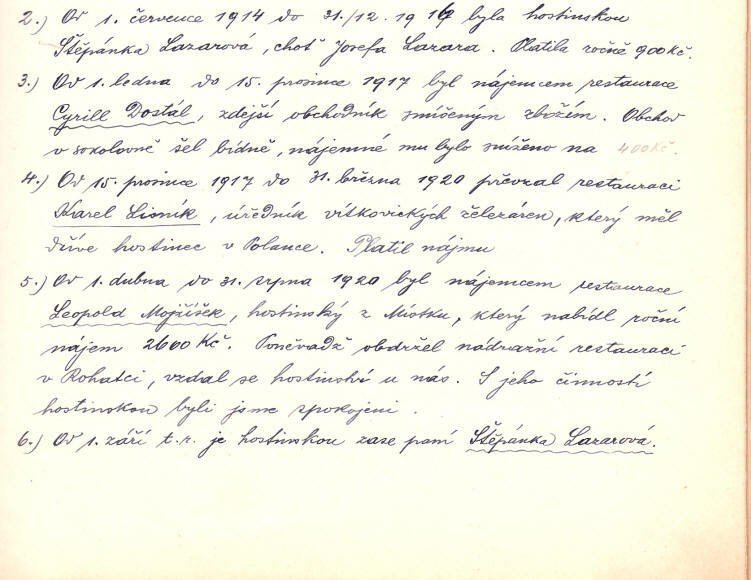 2.) Od 1. července 1914 do 31./12. 1916 byla hostinskou
Štěpánka Lazarová, choť Josefa Lazara. Platila ročně 900 Kč.
3.) Od 1. ledna do 15. prosince 1917 byl nájemcem restaurace
Cyrill Dostál, zdejší obchodník smíšeným zbožím. Obchod
v sokolovně šel bídně, nájemné mu bylo sníženo na 400 Kč.
4.) Od 15. prosince 1917 do 31. března 1920 převzal restauraci
Karel Lisník, úředník vítkovických železáren, který měl
dříve hostinec v Polance. Platil nájmu
5.) Od 1. dubna do 31. srpna 1920 byl nájemcem restaurace
Leopold Mojžíšek, hostinský z Místku, který nabídl roční
nájem 2600 Kč. Poněvadž obdržel nádražní restauraci
v Rohatci, vzdal se hostinství u nás. S jeho činností
hostinskou byli jsme spokojeni.
6.) Od 1. září t.r. je hostinskou zase paní Štěpánka Lazarová.